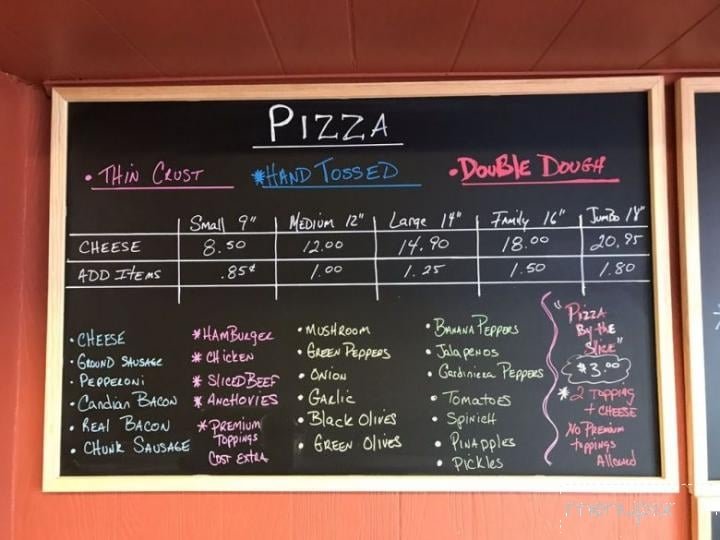 PIZZA
• THIN CRUST *HAND TOSSED • DOUBLE DOUGH
Small 9" MEDIUM 12" Large 14" FAMily 16" JumBo 18"
CHEESE 8.50 12.00 14.90 18.00 20.95
ADD ITEMS .85¢ 1.00 1.25 1.50 1.80
• CHEESE
• GROUND SAUSAGE
• PEPPERONI
• Candian BACON
• REAL BACON
• CHUNK SAUSAGE
* HAMBURGER
* CHICKEN
* SLICED BEEF
* ANCHOVIES
* PREMIUM
TOPPINGS
COST EXTRA
• MUSHROOM
• GREEN PEPPERS
• ONION
• GARLIC
• BLACK OLIVES
• GREEN OLIVES
• BANANA PEPPERS
• Jalapenos
• Gardiniera PEPPERS
• TOMATOES
• SPINICH
• PINAPPLES
• PICKLES
"PIZZA
By the
Slice"
$3.00
* 2 TOPPING
+ CHEESE
NO PREMIUM
toppings
Allowed
menupix